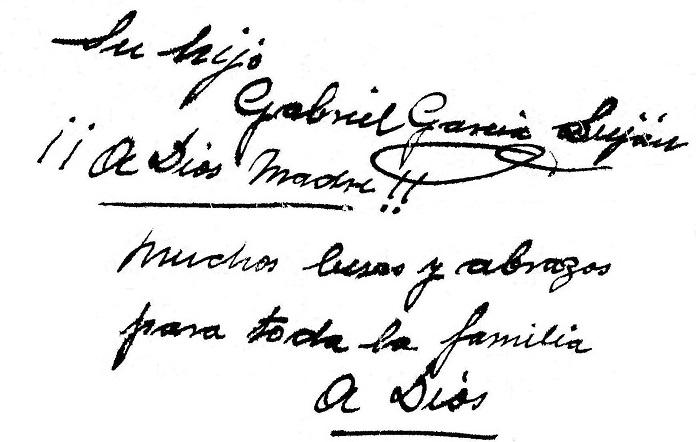 Su hijo
Gabriel Garcia
¡¡A Dios Madre!!
muchos besos y abrazos
para toda la familia
A Diós